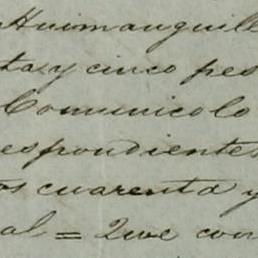 Huimanguill
tas y cinco pes
Comunicolo
espondientes
os cuarenta y
al = Que con